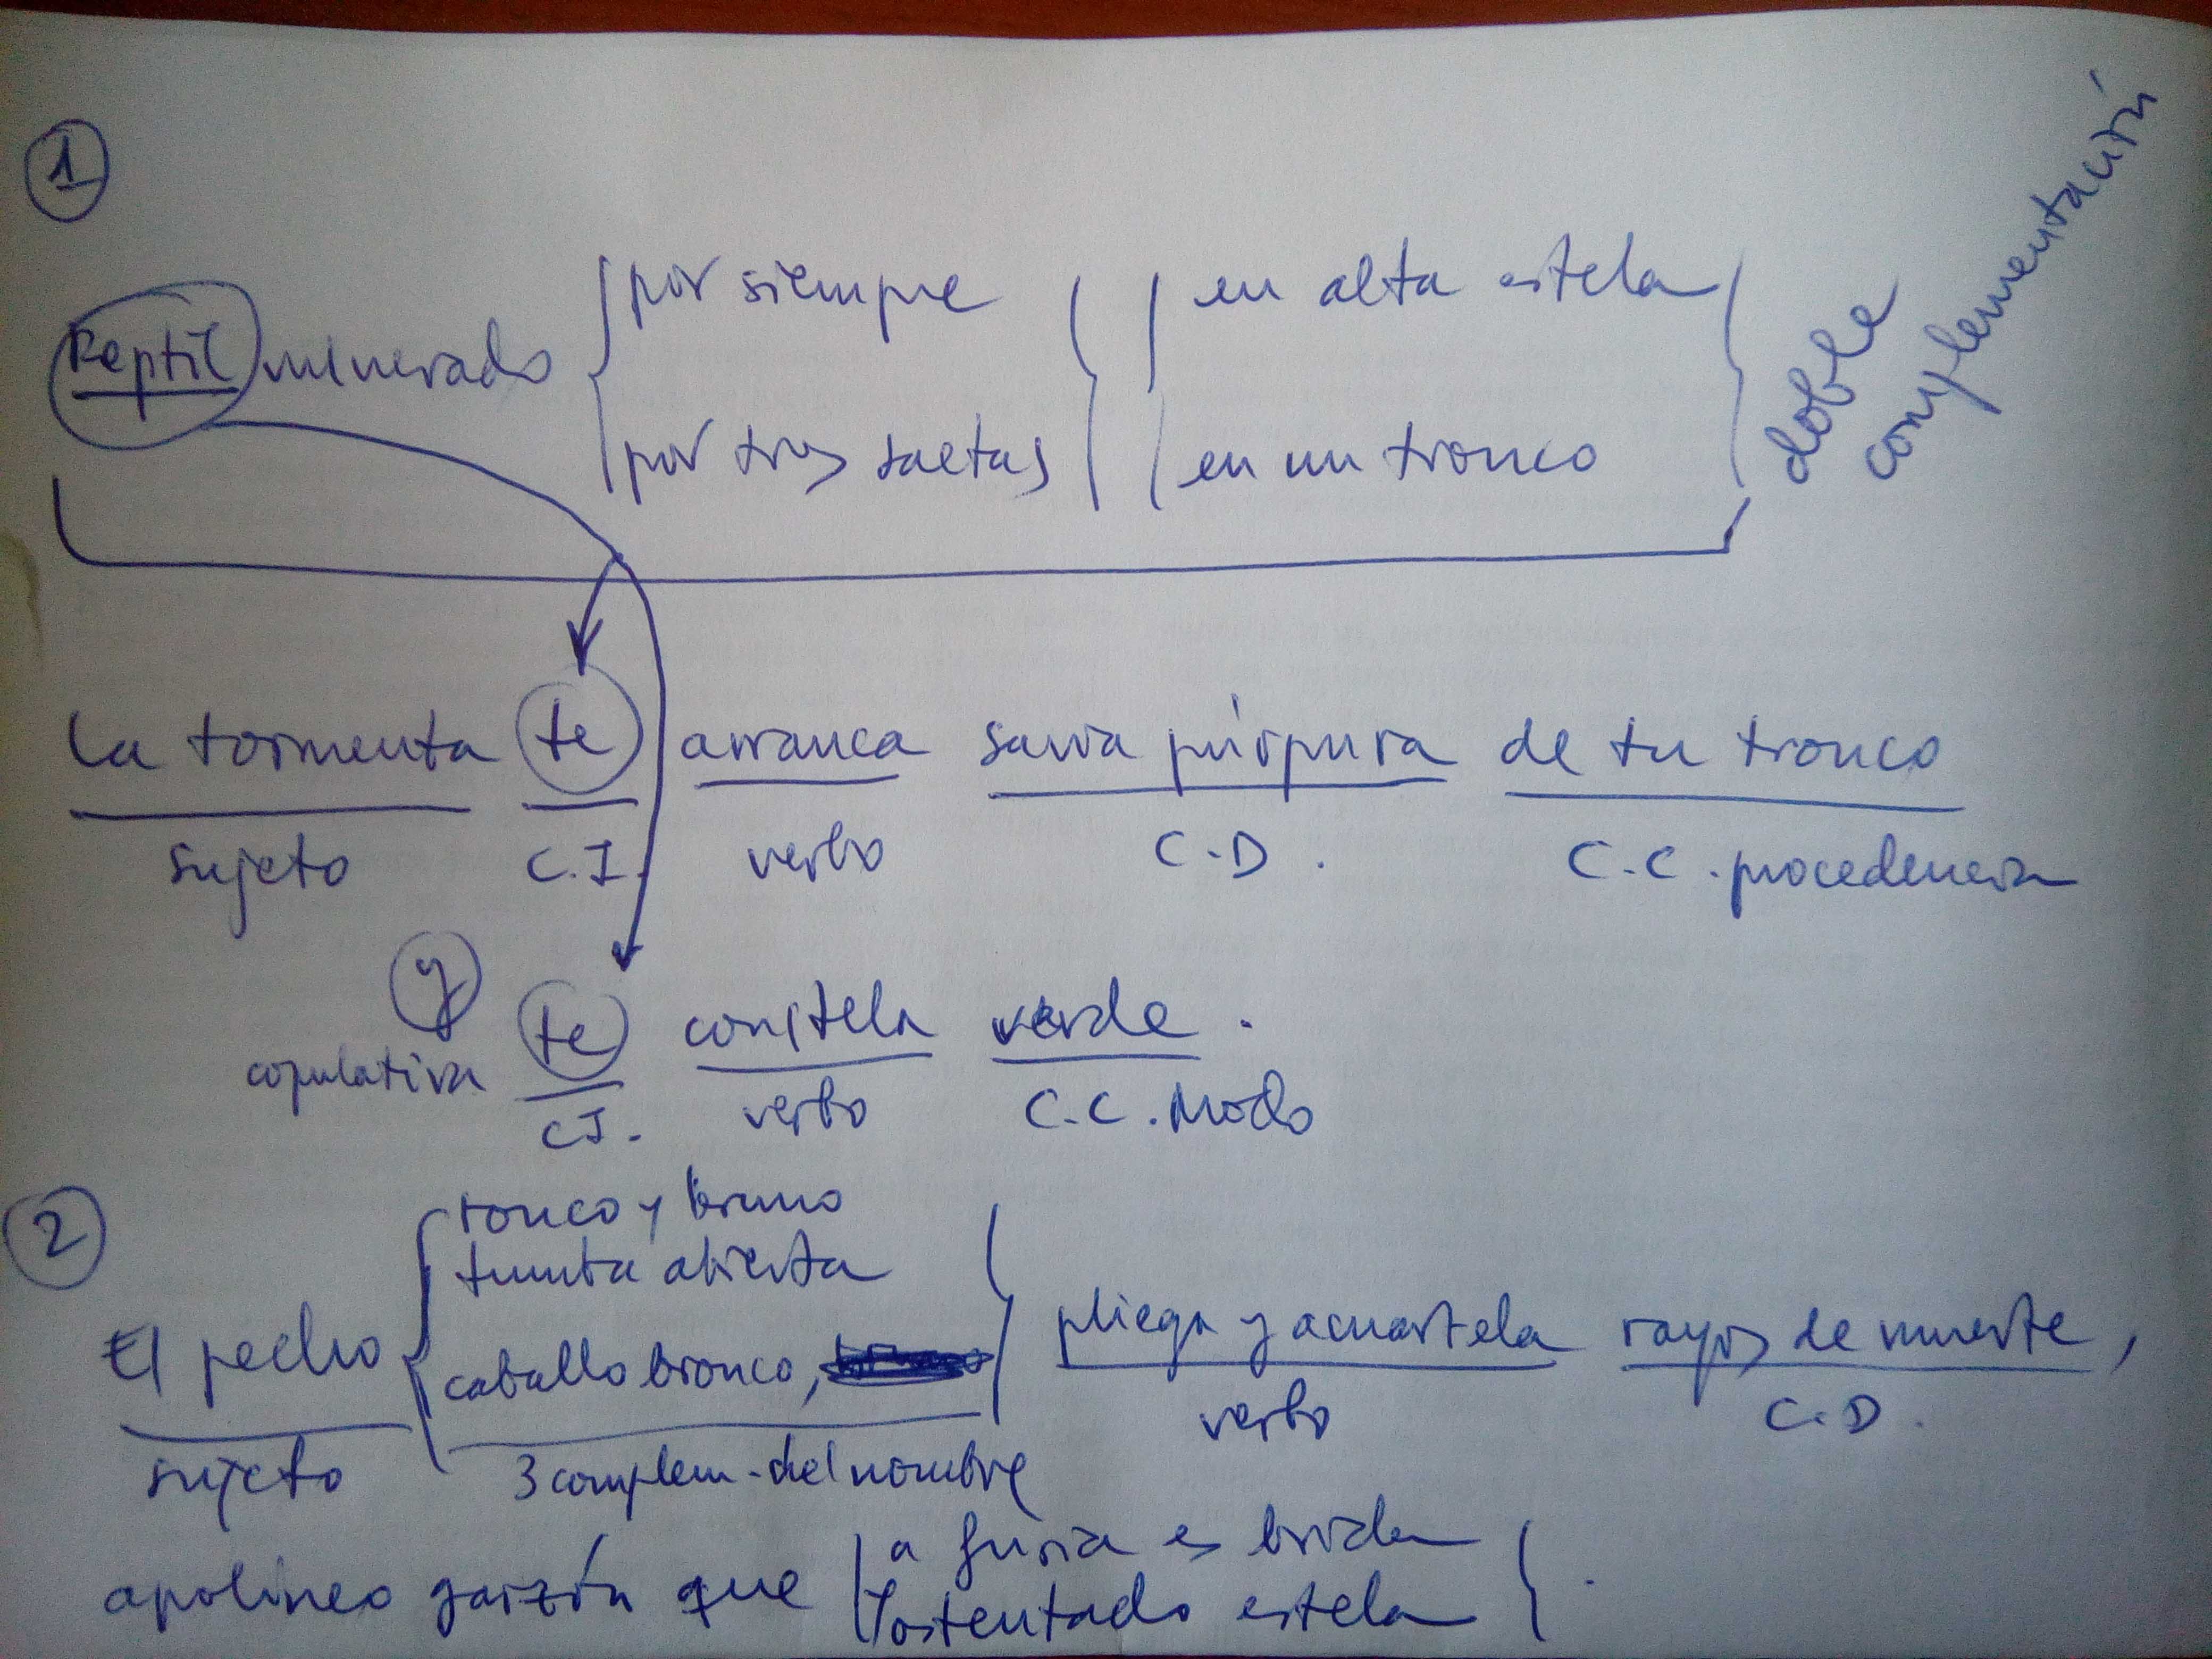 1
por siempre en alta estela
Reptil vulnerado doble complementación
por tres saetas en un tronco
la tormenta te arranca savia púrpura de tu tronco
sujeto C.I. verbo C.D. C.C. procedencia
y te constela verde.
copulativa C.I. verbo C.C. Modo
2
ronco y bruno
tumba abierta
El pecho caballo bronco, pliega y acuartela rayos de muerte,
sujeto 3 complem. del nombre verbo C.D.
a furia es brida
apolíneo garzón que
Y ostentado estela.